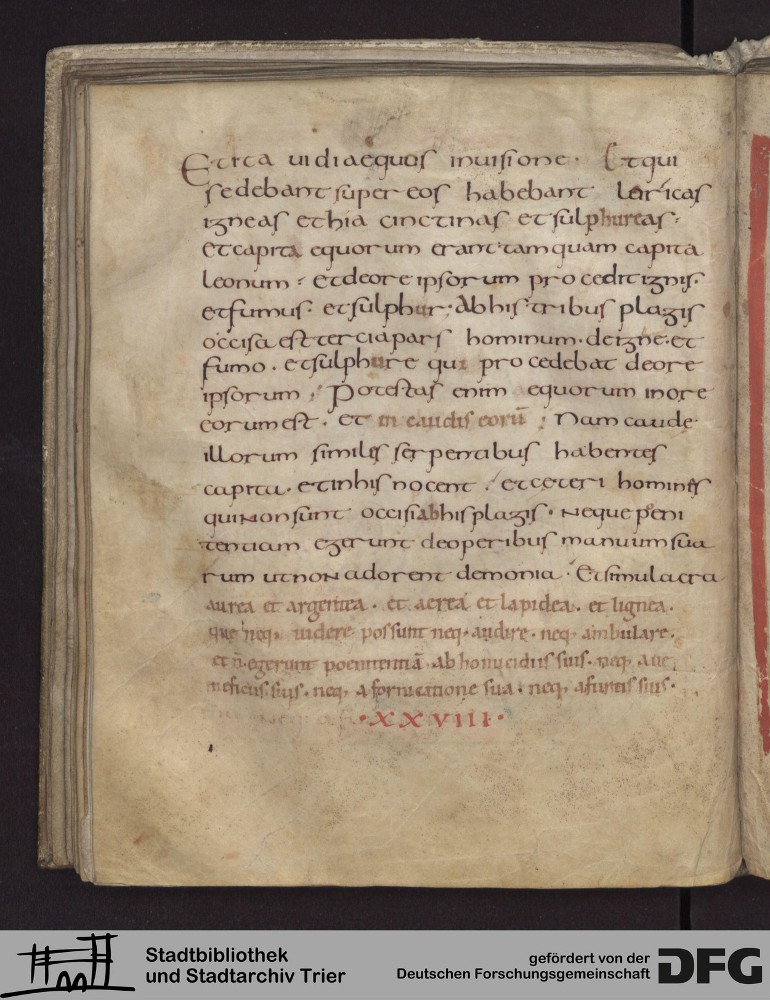 Et ita uidi aequos in uisione. Et qui
sedebant super eos habebant loricas
igneas et hiacinctinas et sulphureas.
Et capita equorum erant tamquam capita
leonum. et de ore ipsorum procedit ignis.
et fumus. et sulphur. Ab his tribus plagis
occisa est tercia pars hominum. de igne. et
fumo. et sulphure qui procedebat de ore
ipsorum; Potestas enim equorum in ore
eorum est. et in caudis eorū; Nam caude
illorum similes serpentibus habentes
capita. et in his nocent. et ceteri homines
qui non sunt occisi ab his plagis. neque peni
tentiam egerunt de operibus manuum sua
rum ut non adorent demonia. Et simulacra
aurea et argentea. et aerea et lapidea. et lignea.
que neq, uidere possunt neq, audire. neq, ambulare.
et n̄ egerunt poenitentiā ab homicidiis suis. neq, a ue
neficiis suis. neq, a fornicatione sua. neq, a furtis suis.
.XXVIII.
Stadtbibliothek
und Stadtarchiv Trier
gefördert von der
Deutschen Forschungsgemeinschaft
DFG